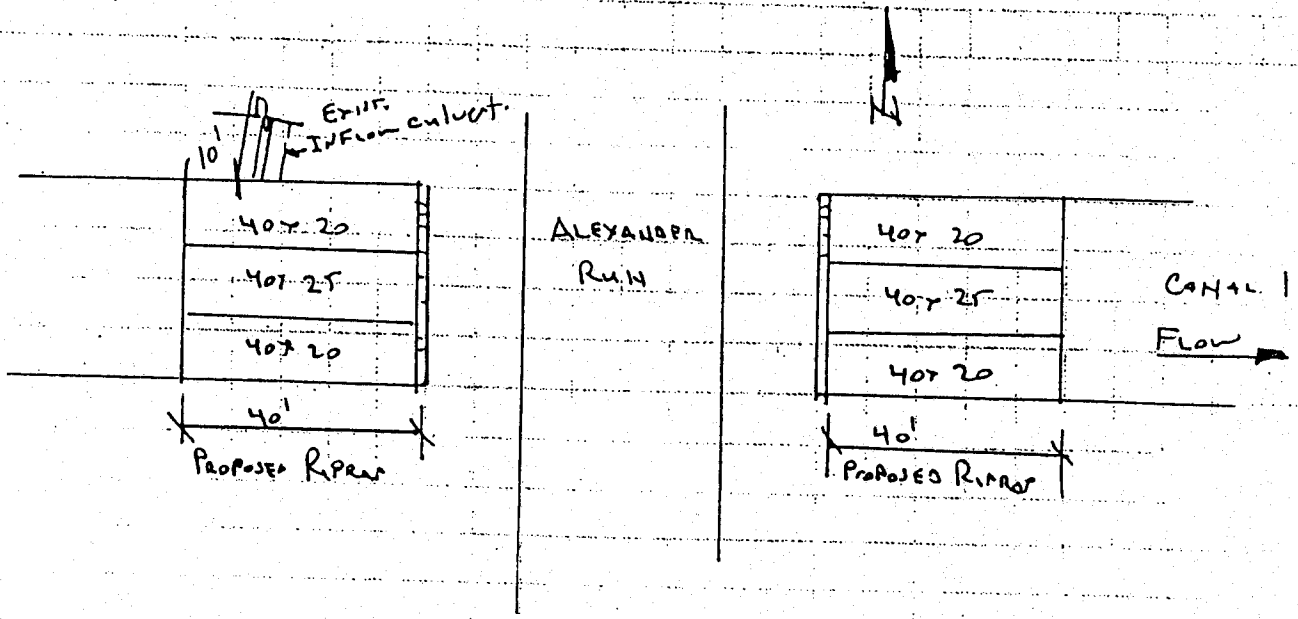 Exist.
Inflow culvert.
10'
40 x 20
40 x 25
40 x 20
40'
Proposed Riprap
ALEXANDER
RUN
40 x 20
40 x 25
40 x 20
40'
Proposed Riprap
CANAL 1
FLOW